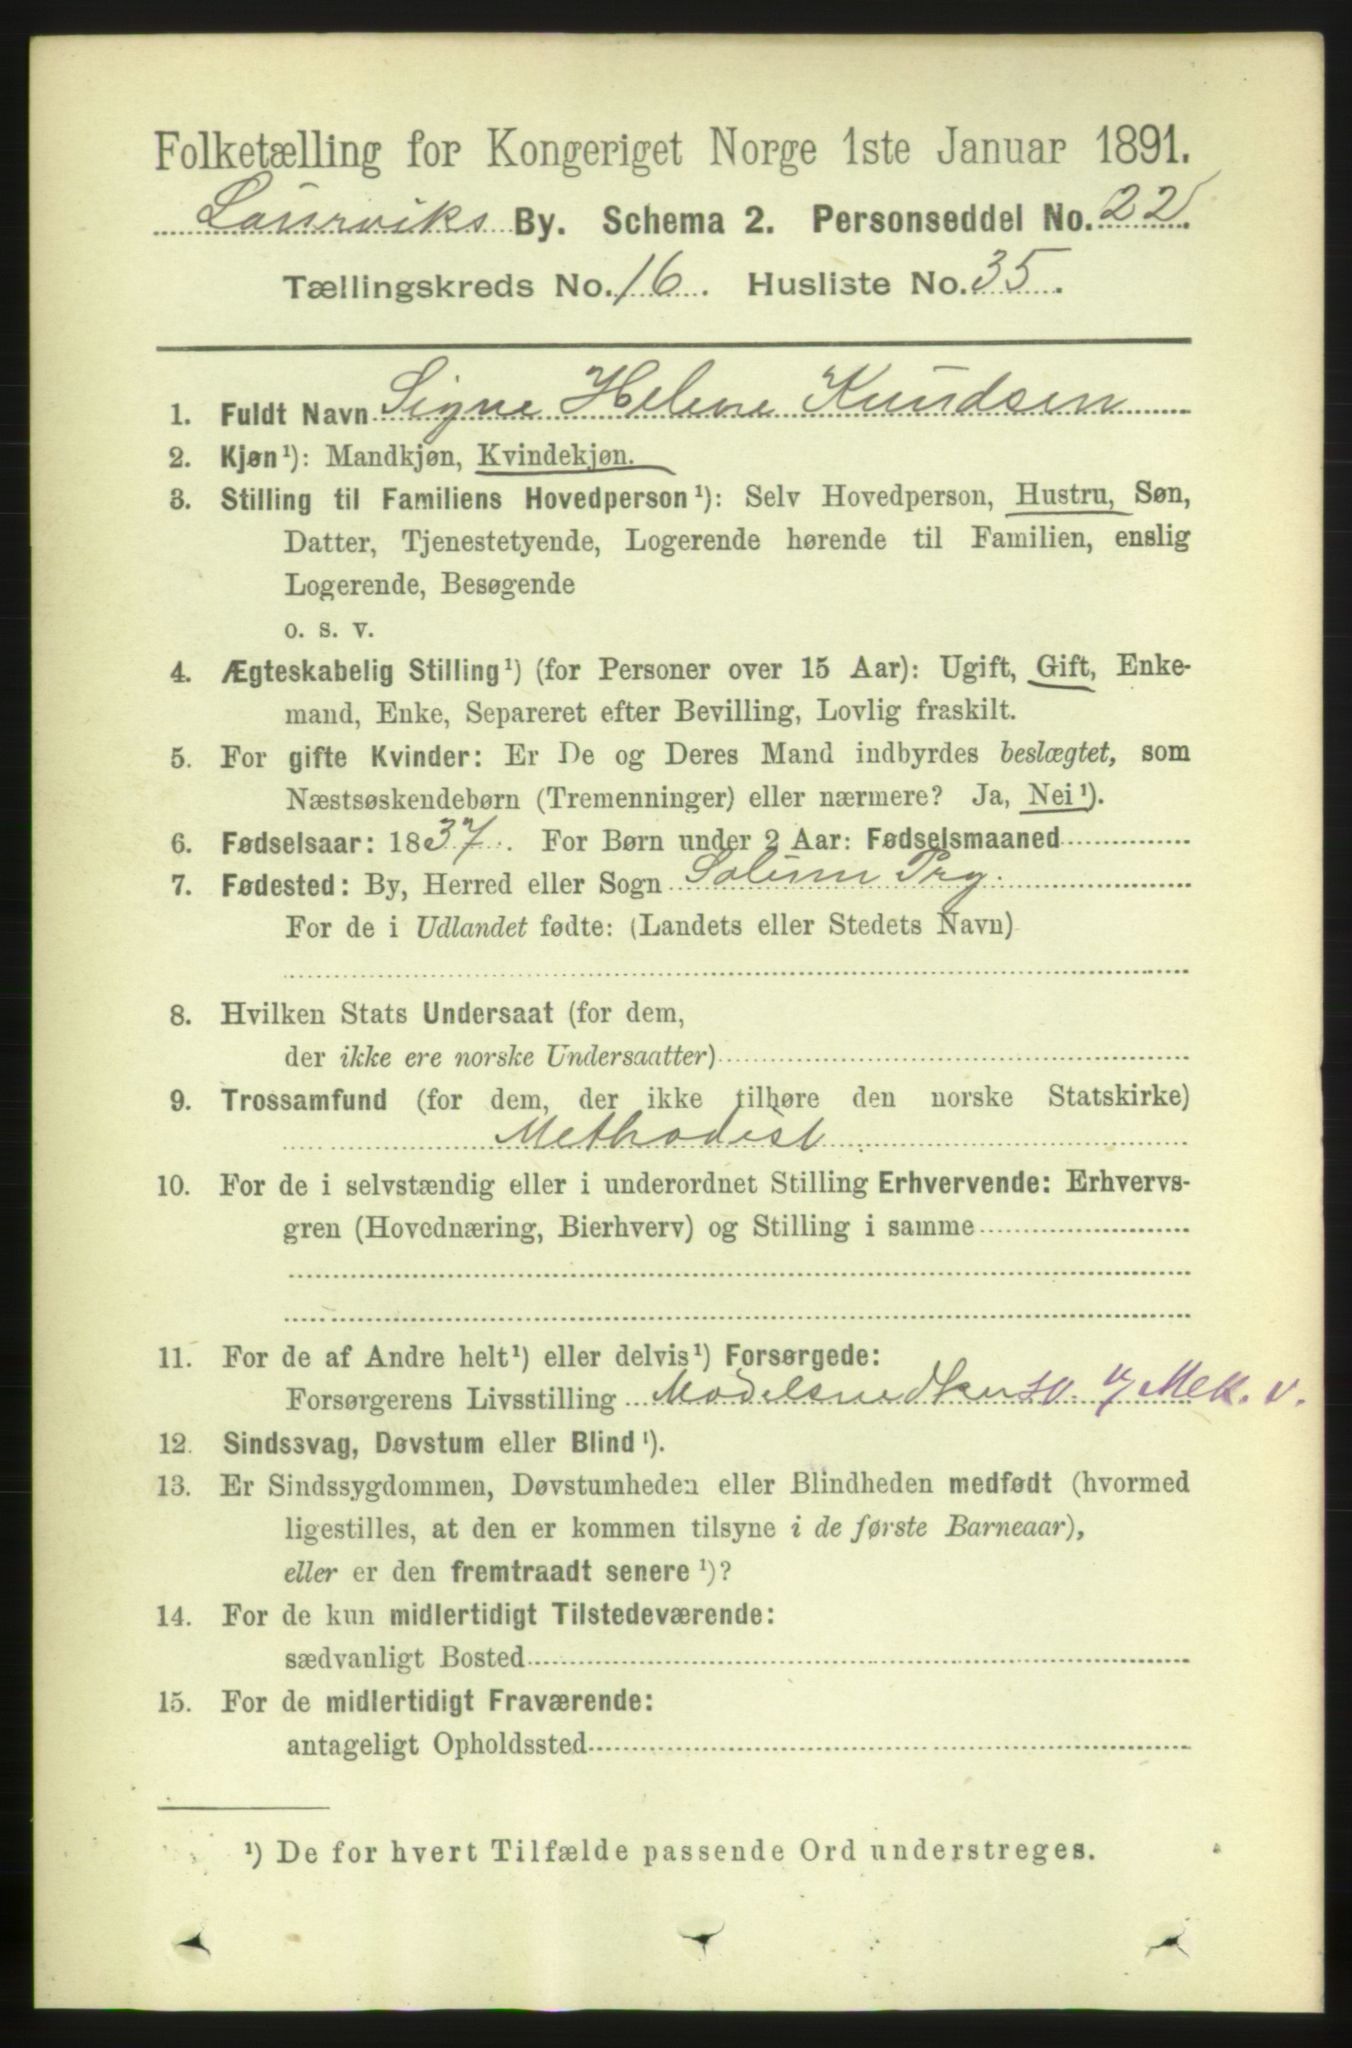 Folketælling for Kongeriget Norge 1ste Januar 1891.
Laurviks By. Schema 2. Personseddel No. 22.
Tællingskreds No. 16. Husliste No. 35.
1. Fuldt Navn Signe Helene Knudsen
2. Kjøn¹): Mandkjøn, Kvindekjøn.
3. Stilling til Familiens Hovedperson¹): Selv Hovedperson, Hustru, Søn,
Datter, Tjenestetyende, Logerende hørende til Familien, enslig
Logerende, Besøgende
o. s. v.
4. Ægteskabelig Stilling¹) (for Personer over 15 Aar): Ugift, Gift, Enke-
mand, Enke, Separeret efter Bevilling, Lovlig fraskilt.
5. For gifte Kvinder: Er De og Deres Mand indbyrdes beslægtet, som
Næstsøskendebørn (Tremenninger) eller nærmere? Ja, Nei¹).
6. Fødselsaar: 1837. For Børn under 2 Aar: Fødselsmaaned
7. Fødested: By, Herred eller Sogn Solum Prg.
For de i Udlandet fødte: (Landets eller Stedets Navn)
8. Hvilken Stats Undersaat (for dem,
der ikke ere norske Undersaatter)
9. Trossamfund (for dem, der ikke tilhøre den norske Statskirke)
Methodist
10. For de i selvstændig eller i underordnet Stilling Erhvervende: Erhvervs-
gren (Hovednæring, Bierhverv) og Stilling i samme
11. For de af Andre helt¹) eller delvis¹) Forsørgede:
Forsørgerens Livsstilling Modelsnedker Mek. v.
12. Sindssvag, Døvstum eller Blind¹).
13. Er Sindssygdommen, Døvstumheden eller Blindheden medfødt (hvormed
ligestilles, at den er kommen tilsyne i de første Barneaar),
eller er den fremtraadt senere¹)?
14. For de kun midlertidigt Tilstedeværende:
sædvanligt Bosted
15. For de midlertidigt Fraværende:
antageligt Opholdssted
¹) De for hvert Tilfælde passende Ord understreges.